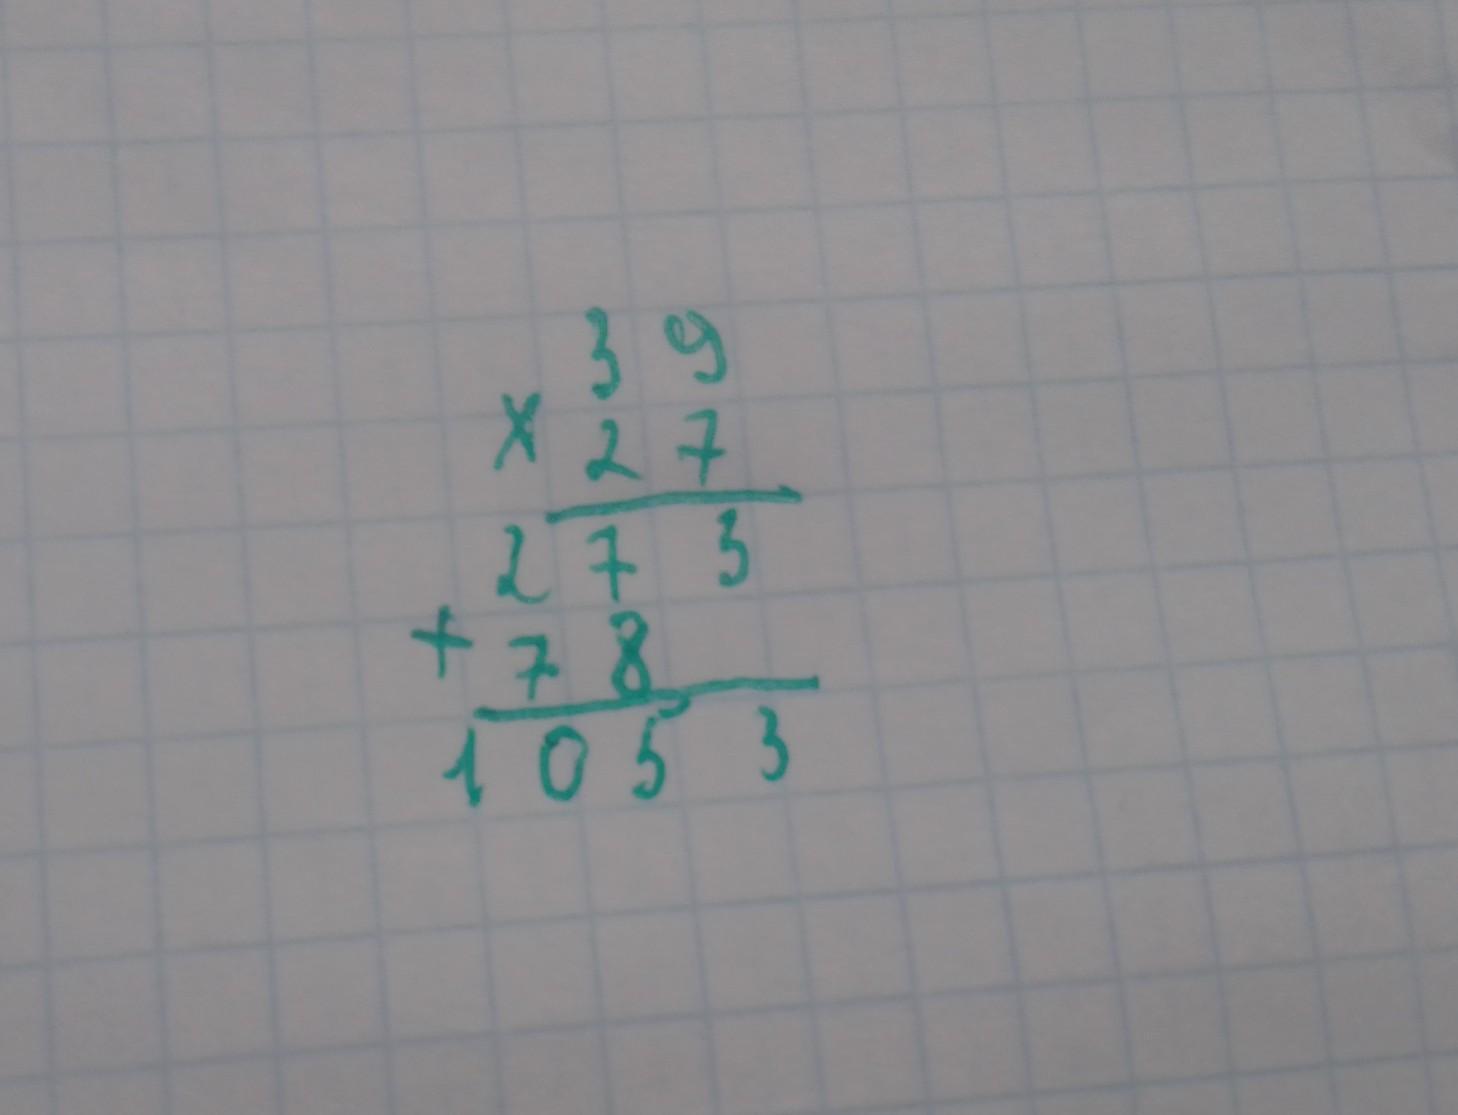 39
× 27
273
+ 78
1053